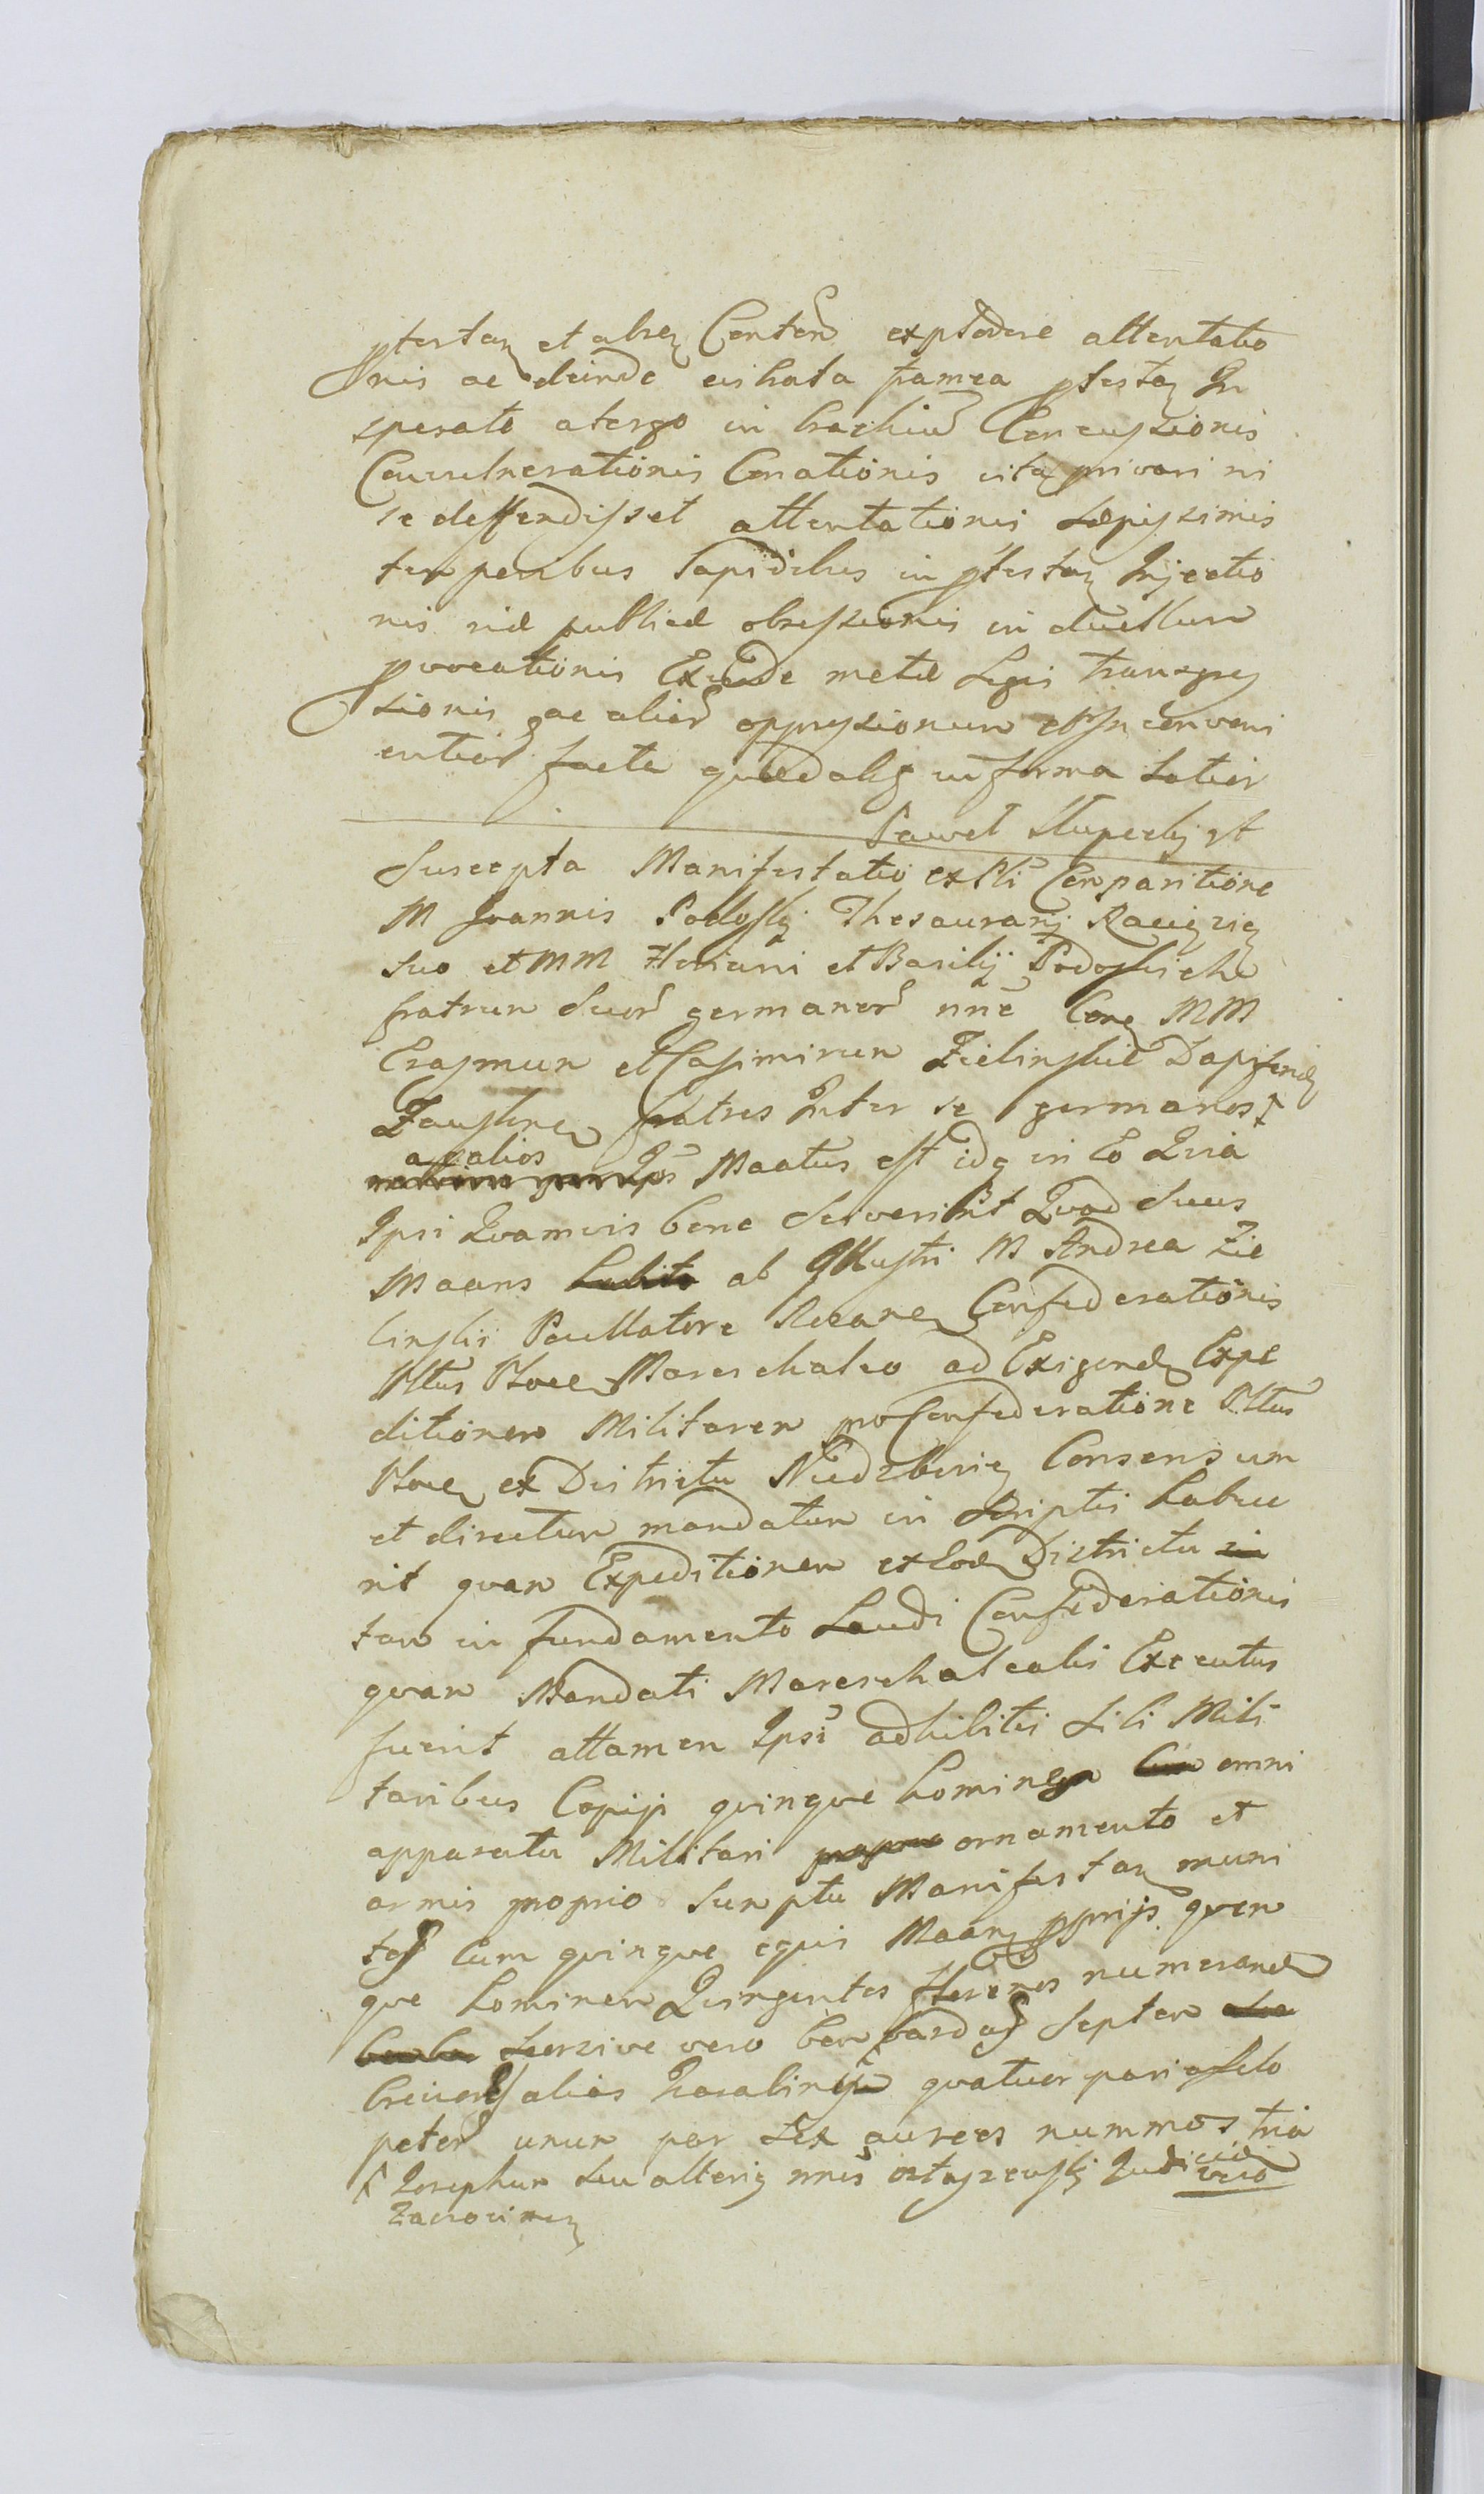 ptestan et alren Conten explodere attentatio
nis ac deinde evibrata framea ptestan In
sperate a tergo in brachium Concussionis
Convulnerationis Conationis vita privari ni
se deffendisset attentationis sæpissimis
temporibus lapidibus in ptestan Injectio
nis viæ publicæ obsessionis in duellum
pvocationis Exinde metæ Legis transgres
sionis ac alior oppressionum et Inconveni
entior facta quædalis in forma latior
Paweł Słupecki st
Suscepta Manifestatio ex Pli Comparitione
M Joannis Podoski Thesaurarij Racigzien
suo et MM Floriani et Basilij Podoskich
fratrum suor germanor nne Cona MM
Erasmum et Casimirum Zielinskie Dapiferid
Zauskrnen fratres Inter se germanos
a alios Ips Maatus est idq in Eo Quia
Ipsi Quamvis bene Sciverint Quod suus
Maans ab Illustri M Andrea Zie
linskii Pocillatore Rozanen Confederationis
Pltus Plocen Mareschalco ad Exigend Expe
ditionem Militarem pro Confederatione Pltus
Plocen ex Districtu Niedzborien Consensum
et directum mandatum in Scriptis habue
rit quam Expeditionem ex Eod Districtu
tam in fundamento Laudi Confederationis
quam Mandati Mareschalcalis Executus
fuerit attamen Ipsi adhibitis sibi Mili
taribus Copijs quinque homines omni
apparatu Militari ornamento et
armis proprio Sumptu Manifestan muni
tos Cum quinque equis Maan pprijs quem
que hominem Quingentos florenos numerand
Cursive vero bombardas Septem
breviores alias Karabiny quatuor paria sclo
petor unum par sex aureos nummos tria
Josephum seu alterius nnis Ostaszewski Judicid vero
Zacrocimen